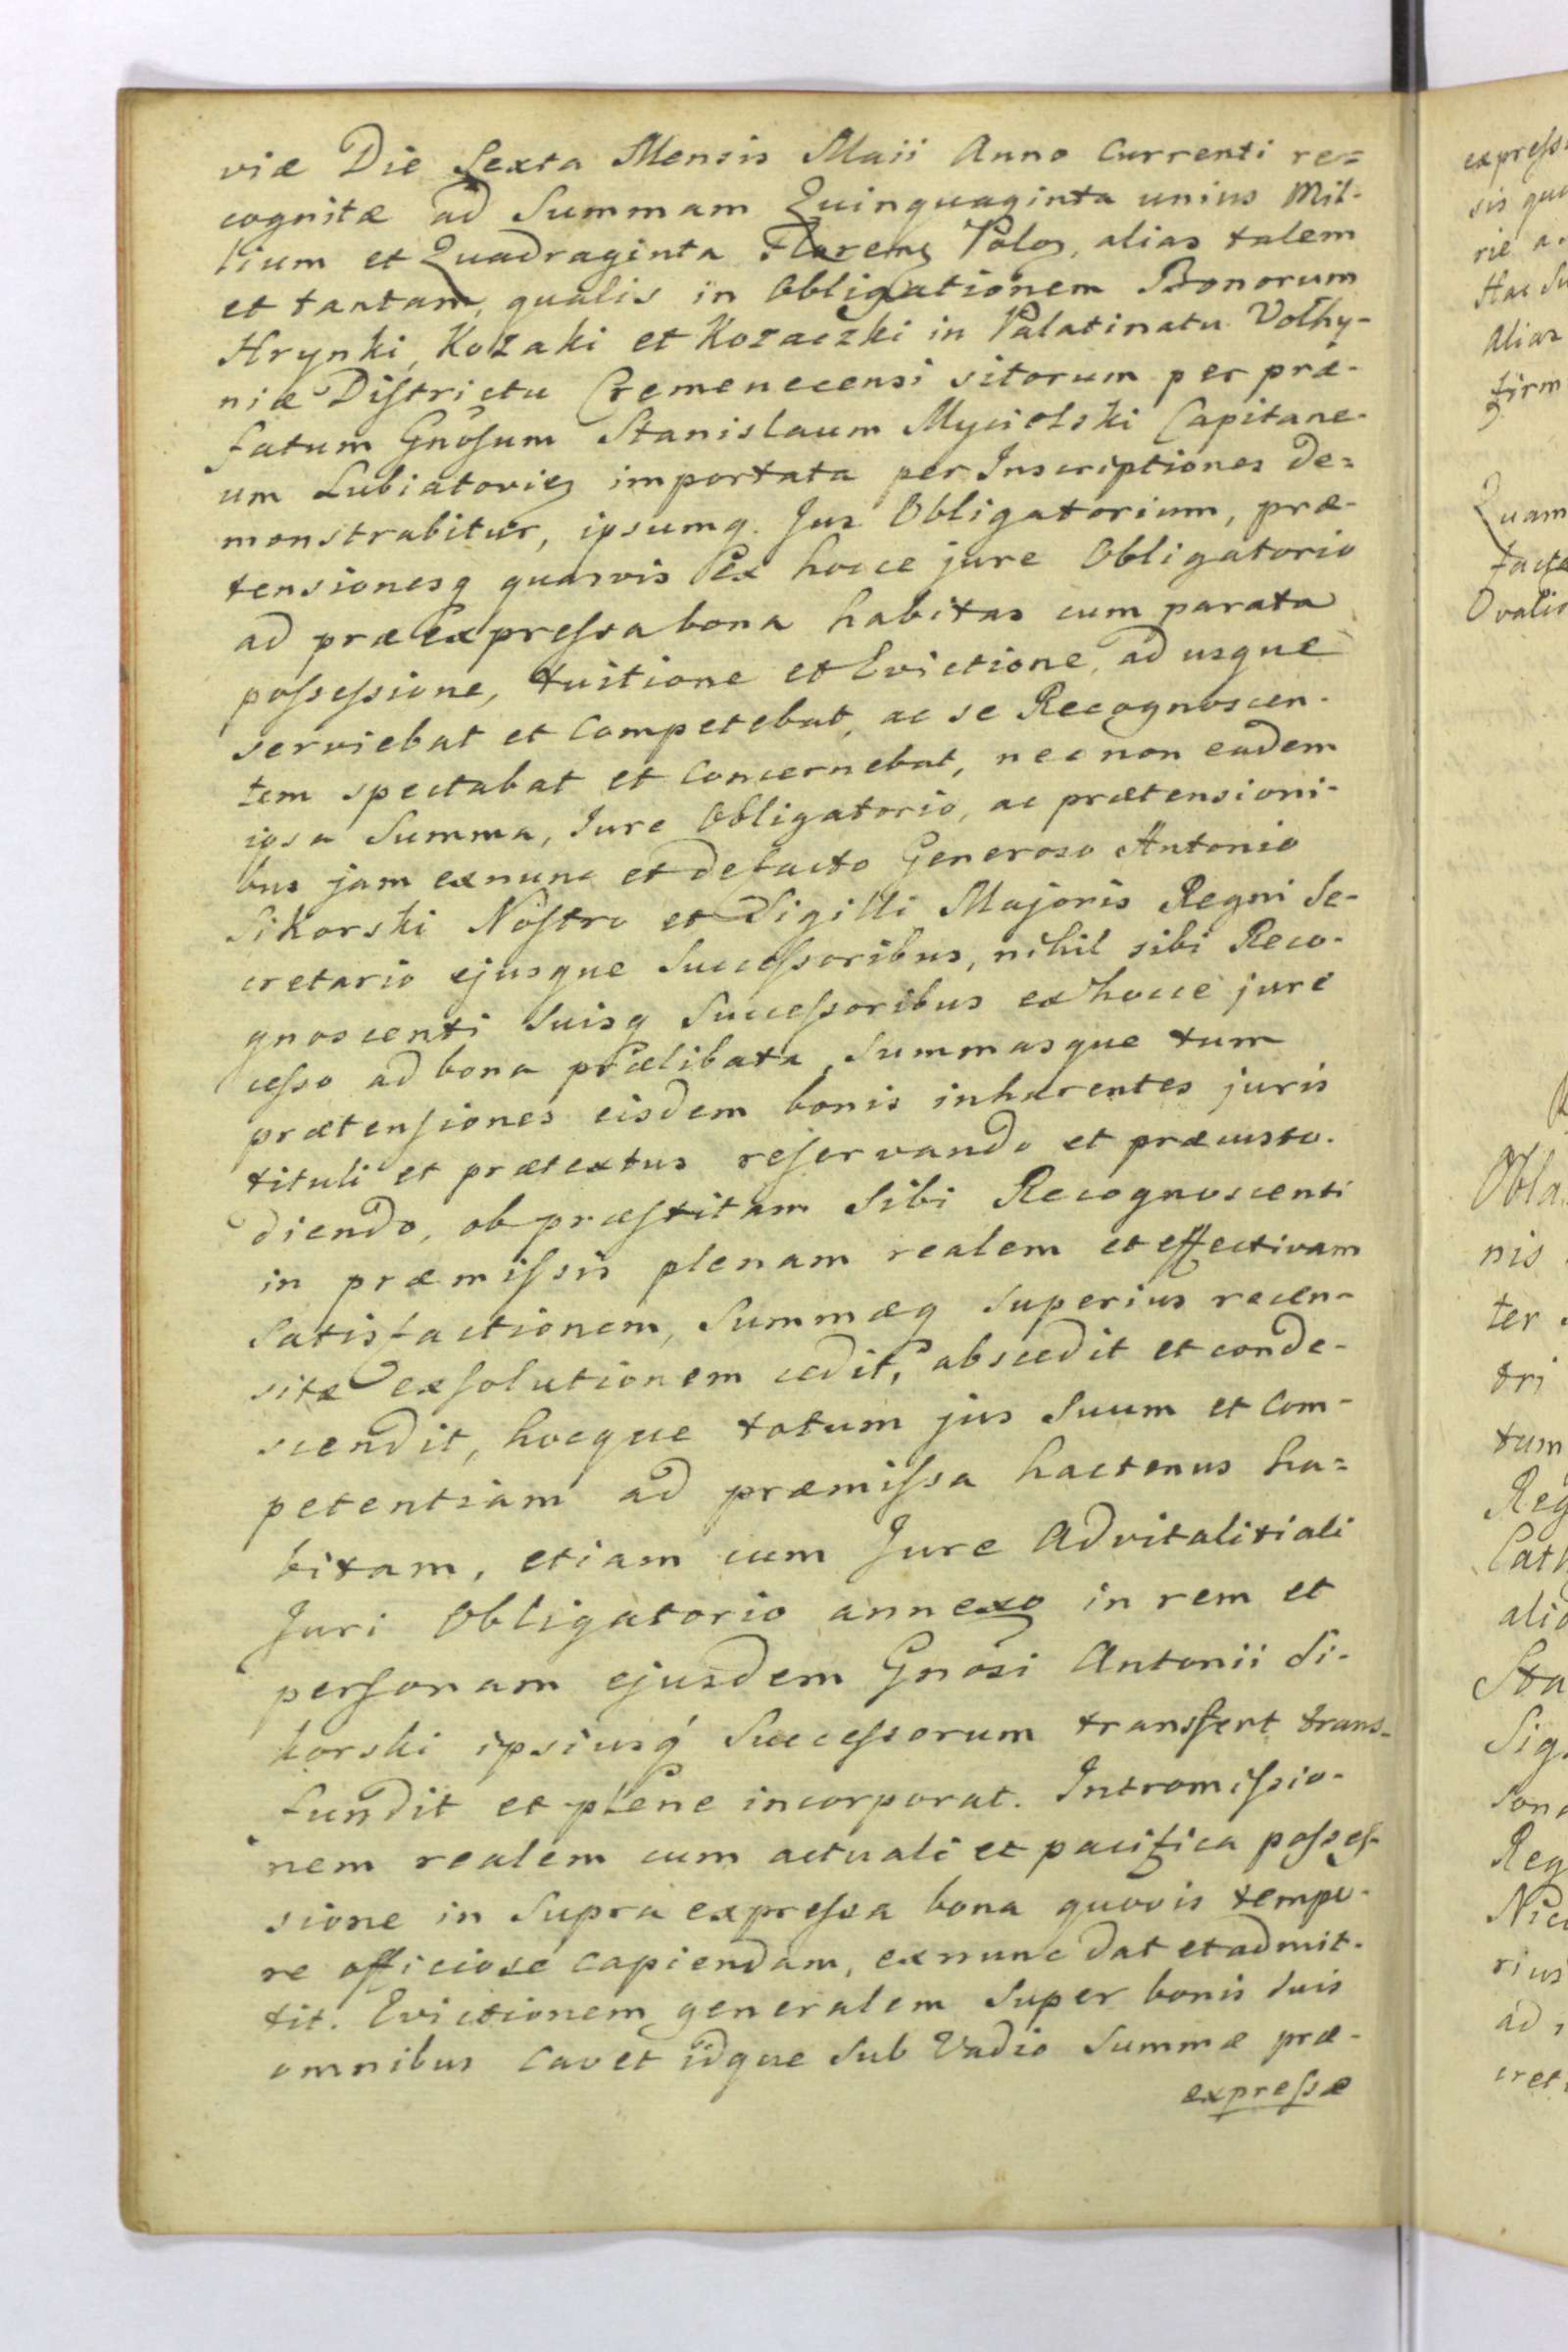 viæ Die Sexta Mensis Maii Anno Currenti re=
cognitæ ad Summam Quinquaginta unius Mil-
lium et Quadraginta Floreng Polog, alias talem
et tantam, qualis in Obligationem Bonorum
Hrynki, Kozaki et Kozaczki in Palatinatu Vołhy-
niæ Districtu Cremenecensi sitorum per præ-
fatum Gnosum Stanislaum Mycielski Capitane-
um Lubiatovieg importata per Inscriptiones de=
monstrabitur, ipsumq. Jus Obligatorium, præ-
tensionesq quasvis ex hocce jure Obligatorio
ad præexpressa bona habitas cum parata
possessione, tuitione et Evictione, ad usque
serviebat et Competebat, ac se Recognoscen-
tem spectabat et Concernebat, nec non eadem
ipsa Summa, Jure Obligatorio, ac prætensioni-
bus jam exnunc et defacto Generoso Antonio
Sikorski Nostro et Sigilli Majoris Regni Se-
cretario ejusque Successoribus, nihil sibi Reco-
gnoscenti Suisq Successoribus ex hocce jure
cesso ad bona prælibata, Summasque tum
prætensiones eisdem bonis inhærentes juris
tituli et prætextus reservando et præcusto-
diendo, ob præstitam Sibi Recognoscenti
in præmissis plenam realem et effectivam
Satisfactionem, Summæq Superius recen-
sitæ exsolutionem cedit, abscedit et conde-
scendit, hocque totum jus Suum et Com-
petentiam ad præmissa hactenus ha=
bitam, etiam cum Jure Advitalitiali
Juri Obligatorio annexo in rem et
personam ejusdem Gnosi Antonii Si-
korski ipsiusq Successorum transfert trans-
fundit et plene incorporat. Intromissio-
nem realem cum actuali et pacifica posses-
sione in Supra expressa bona quovis tempo-
re officiose Capiendam, exnunc dat et admit-
tit. Evictionem generalem Super bonis Suis
omnibus Cavet idque Sub Vadio Summæ præ-
expressæ
expresse
sis qu
rie a
Hac Su
alias
firm
Quam
facte
Ovalis
Obla
nis
ter
tri
tum
Reg
Cath
alid
Sta
Sig
Son
Reg
Nic
rius
ad
cret